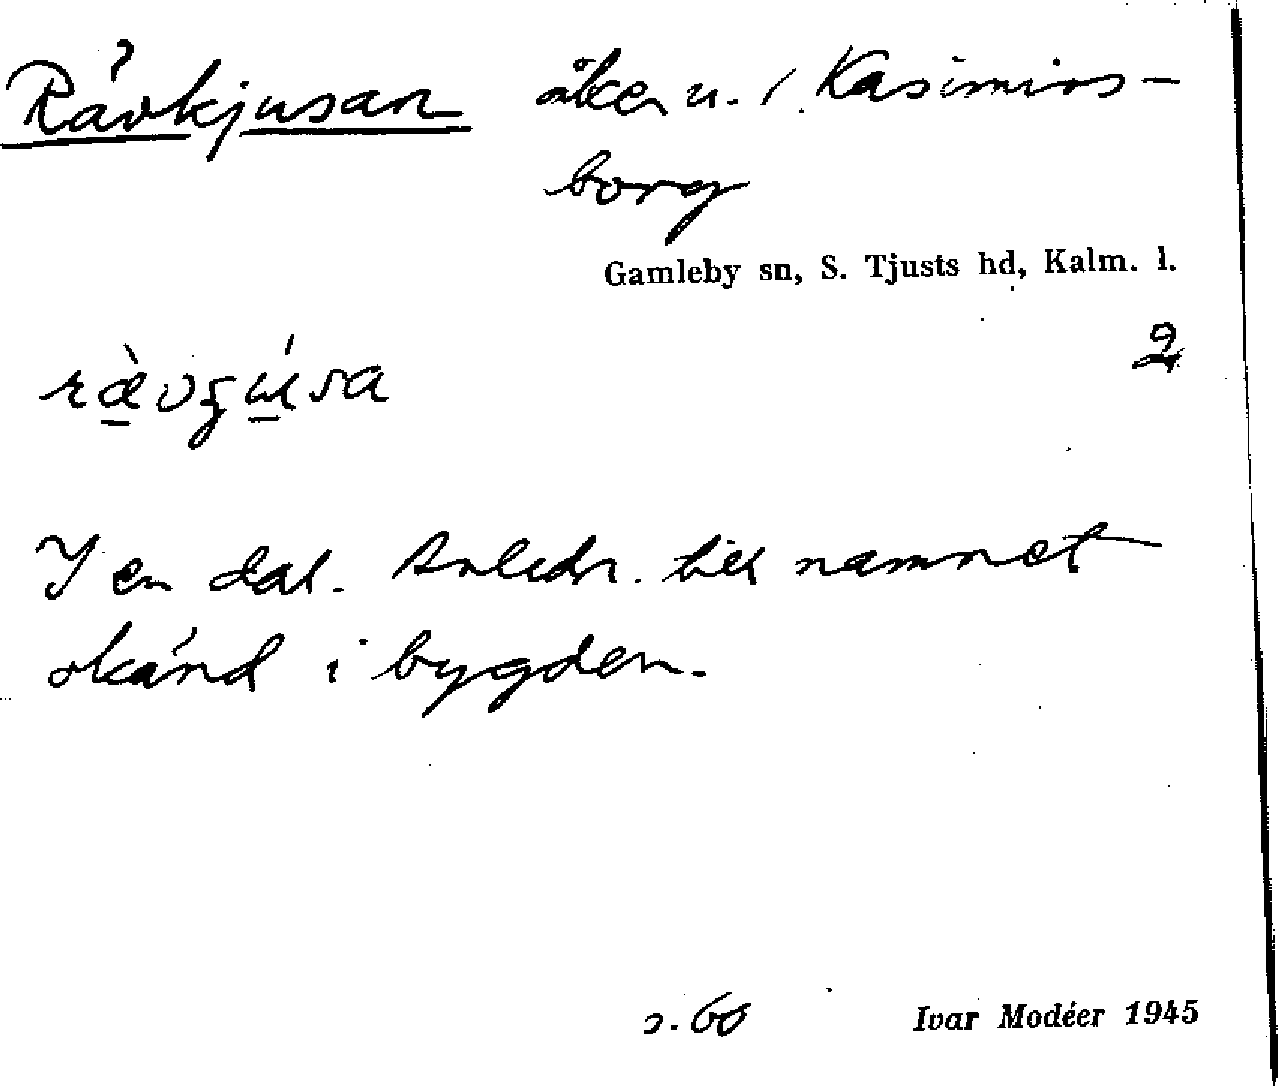 Rävkjusan åker u. / Kasimirs-
borg
Gamleby sn, S. Tjusts hd, Kalm. l.
2
I en dal. Anledn. till namnet
okänd i bygden.
s. 60 Ivar Modéer 1945